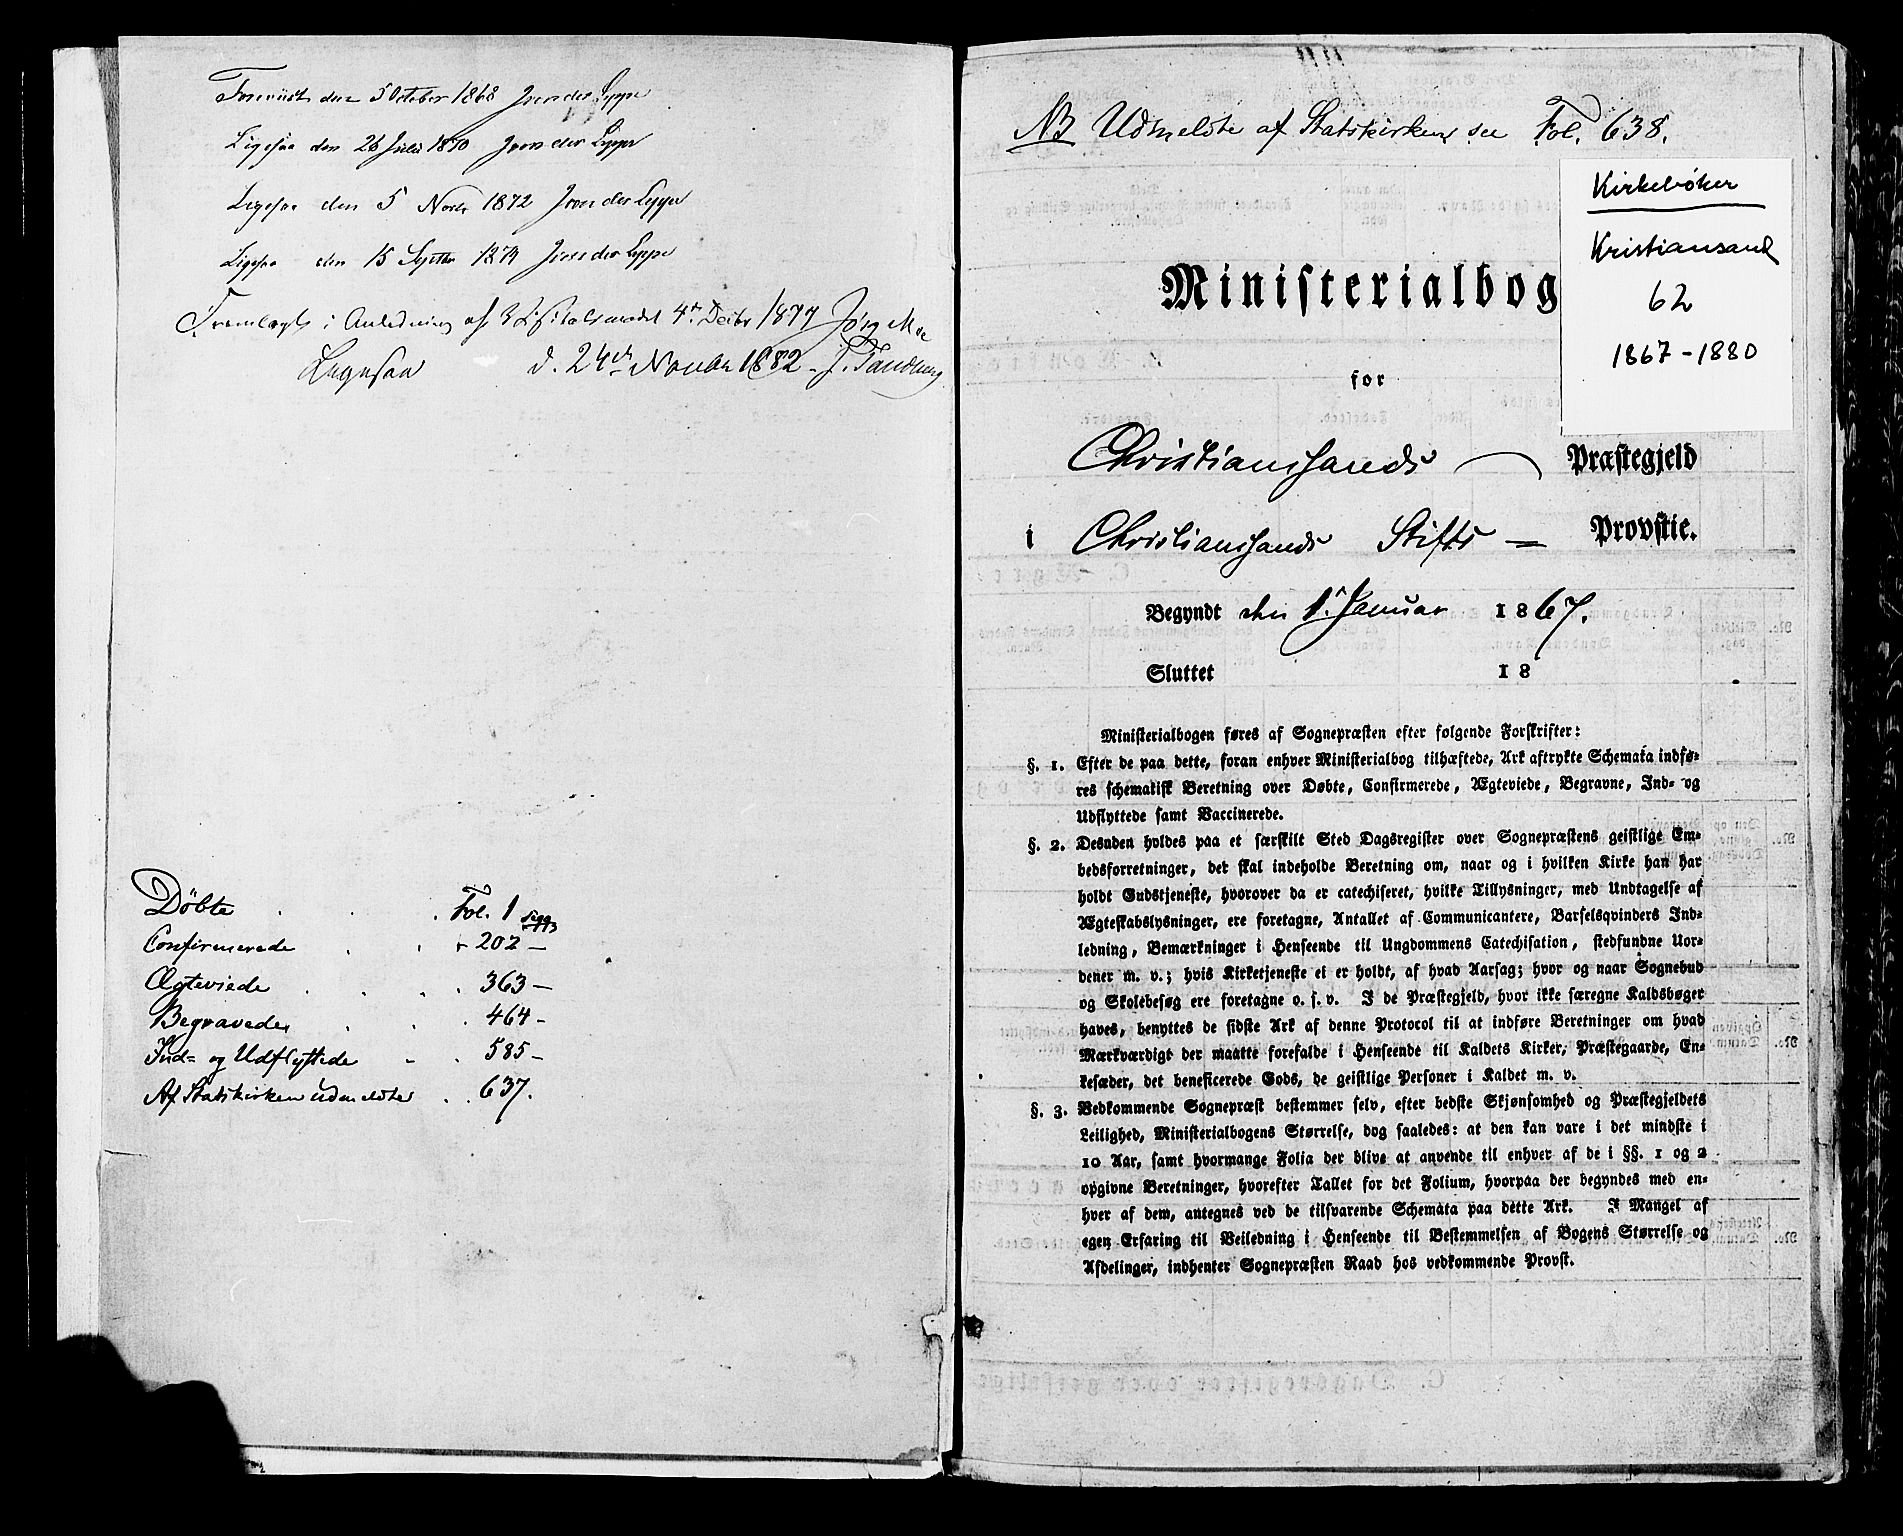 Foreviist den 5 October 1868 J von der Lippe
Ligesaa den 26 Juli 1870 J von der Lippe
Ligesaa den 5 Novbr 1872 J von der Lippe
Ligesaa den 15 Septbr 1874 J von der Lippe
Fremlagt i Anledning af Visitatsmødet 4de Decbr 1877 Jørg Moe
Ligesaa d. 24de Novbr 1882 J. Tandberg
Døbte . . . Fol. 1 sqq
Confirmerede . . " 202 —
Ægteviede . . . . 363 —
Begravede . . . 464 –
Ind= og Udflyttede . . 585 –
Af Statskirken udmeldte . . 637.
NB Udmeldte af Statskirken see Fol. 638.
Kirkebøker
Kristiansand
62
1867-1880
Ministerialbog
for
Christianssands Præstegjeld
i Christianssands Stifts = Provstie.
Begyndt den 1ste Januar 1867.
Sluttet 18
Ministerialbogen føres af Sognepræsten efter følgende Forskrifter:
§. 1. Efter de paa dette, foran enhver Ministerialbog tilhæftede, Ark aftrykte Schemata indfø=
res schematisk Beretning over Døbte, Confirmerede, Ægteviede, Begravne, Ind= og
Udflyttede samt Vaccinerede.
§. 2. Desuden holdes paa et særskilt Sted Dagsregister over Sognepræstens geistlige Em=
bedsforretninger, det skal indeholde Beretning om, naar og i hvilken Kirke han har
holdt Gudstjeneste, hvorover da er catechiseret, hvilke Tillysninger, med Undtagelse af
Ægteskabslysninger, ere foretagne, Antallet af Communicantere, Barselqvinders Ind=
ledning, Bemærkninger i Henseende til Ungdommens Catechisation, stedfundne Uor=
dener m. v.; hvis Kirketjeneste ei er holdt, af hvad Aarsag; hvor og naar Sognebud
og Skolebesøg ere foretagne o. s. v. I de Præstegjeld, hvor ikke særegne Kaldsbøger
haves, benyttes de sidste Ark af denne Protocol til at indføre Beretninger om hvad
Mærkværdigt der maatte forefalde i Henseende til Kaldets Kirker, Præstegaarde, En=
kesæder, det beneficerede Gods, de geistlige Personer i Kaldet m. v.
§. 3. Vedkommende Sognepræst bestemmer selv, efter bedste Skjønsomhed og Præstegjeldets
Leilighed, Ministerialbogens Størrelse, dog saaledes: at den kan vare i det mindste i
10 Aar, samt hvormange Folia der blive at anvende til enhver af de i §§. 1 og 2
opgivne Beretninger, hvorefter Tallet for det Folium, hvorpaa der begyndes med en=
hver af dem, antegnes ved de tilsvarende Schemata paa dette Ark. I Mangel af
egen Erfaring til Veiledning i Henseende til Bestemmelsen af Bogens Størrelse og
Afdelinger, indhenter Sognepræsten Raad hos vedkommende Provst.